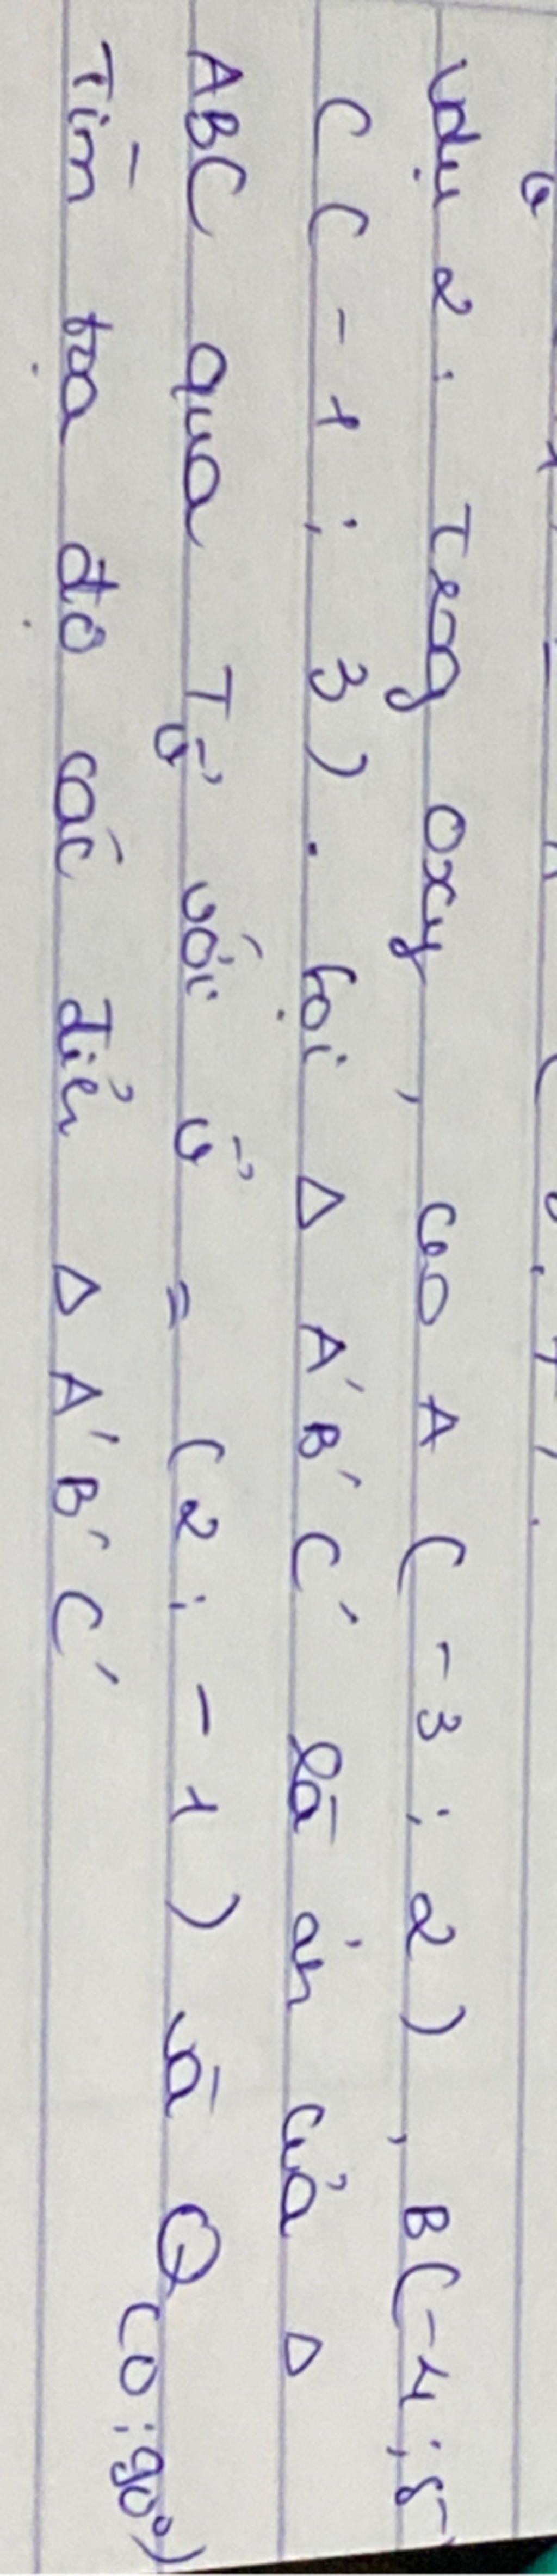 Vdụ 2: Trog Oxy, cho A (-3; 2), B(-4; 5
C (-1; 3). Gọi Δ A'B'C' là ảh của Δ
ABC qua Tv⃗ với v⃗ = (2; -1) và Q(O; 90°)
Tìm tọa độ các điển Δ A'B'C'